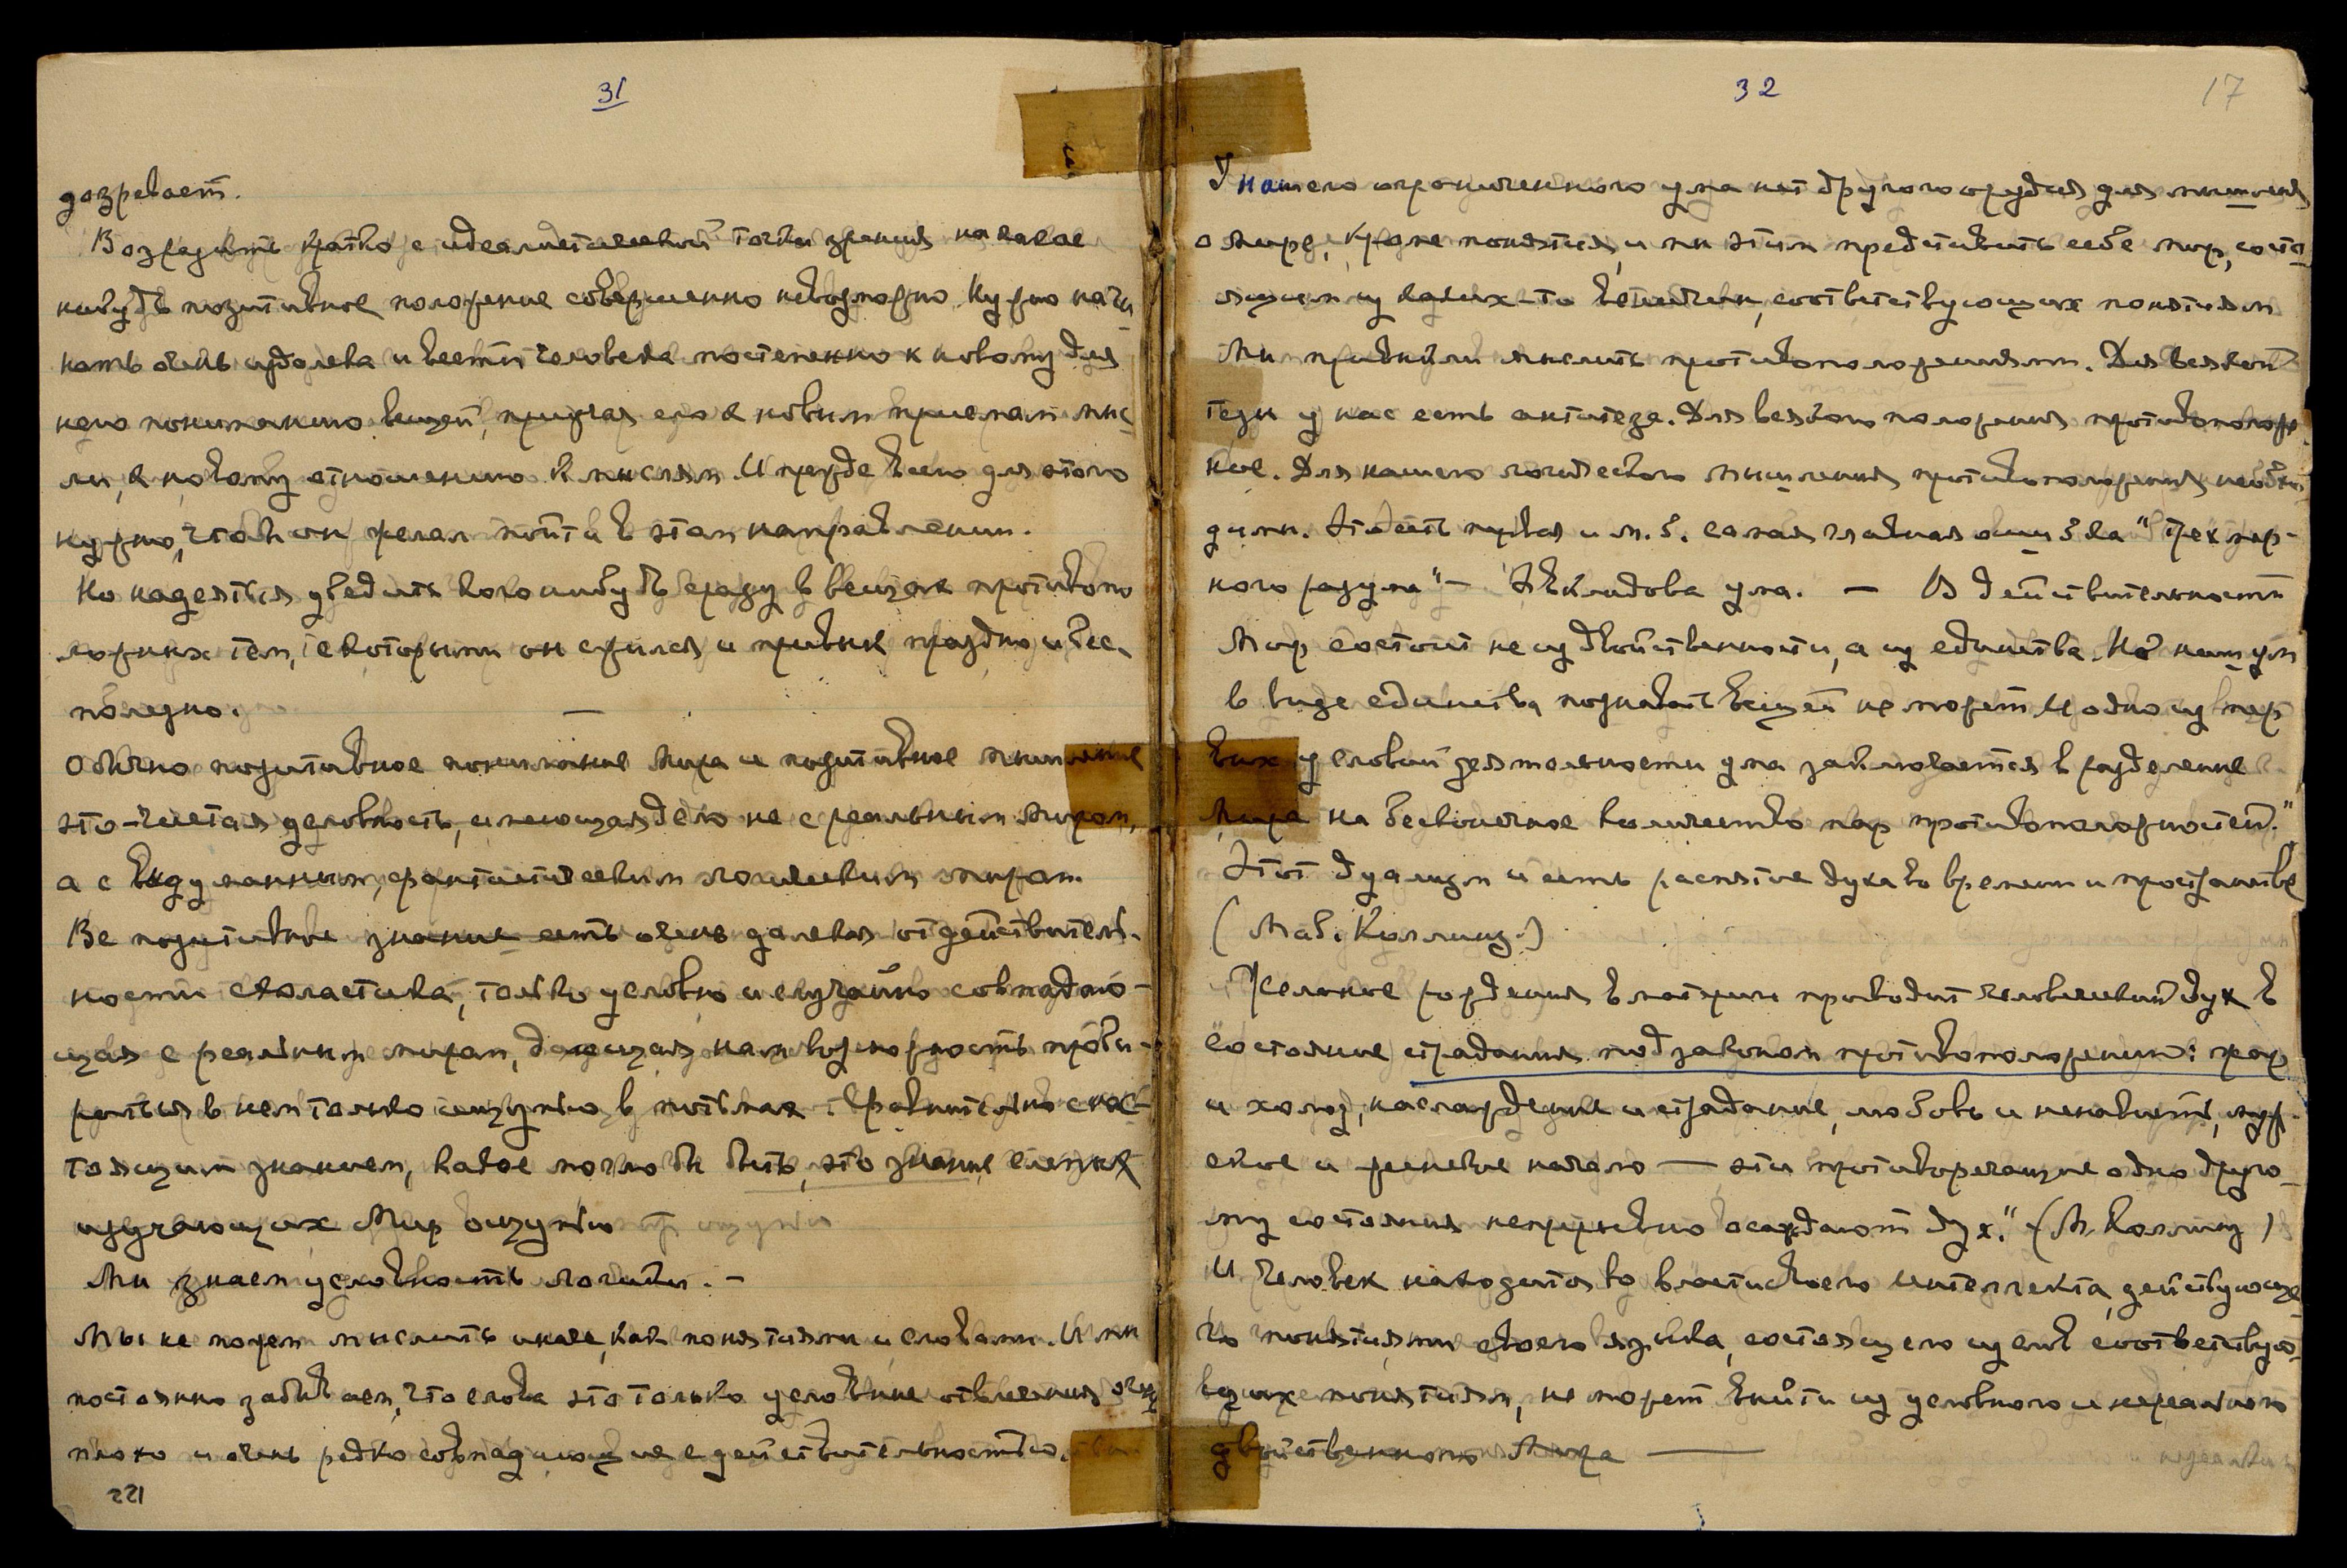 31
дозревает.
Возразить кратко с идеалистической точки зрения на какое
нибудь позитивное положение совершенно невозможно. Нужно начи
нать очень издалека и вести человека постепенно к новому для
него пониманию вещей, приучая его к новым приемам мыс
ли, к новому отношению к мыслям. И прежде всего для этого
нужно, чтобы он желал пойти в этом направлении.
Но надеяться убедить кого нибудь сразу в вещах противопо
ложных тем, с которыми он сжился и привык праздно и бес
полезно.
Обычно позитивное понимание мира и позитивное мышление
это - чистая условность, имеющая дело не с реальным миром,
а с выдуманным, фантастическим логическим миром.
Все позитивное знание есть очень далекая от действитель-
ности схоластика, только условно и случайно совпадаю-
щая с реальным миром, дающая нам возможность проби-
раться в нем только ощупью в потьмах. Сравнительно с нас-
тоящим знанием, какое могло бы быть, это знание слепых
изучающих Мир ощупью
Мы знаем условность логики. -
Мы не можем мыслить иначе, как понятиями и словами. И мы
постоянно забываем, что слова это только условные отвлечения очень
плохо и очень редко совпадающие с действительностью.
221
32
17
У нашего ограниченного ума нет другого орудия для мышления
о мире, кроме понятия, и мы этим представить себе мир, состо
ящим из каких-то величин, соответствующих понятиям
Мы привыкли мыслить противоположениями. Для всякой
тезы у нас есть антитеза. Для всякого положения противоположе
ние. Для нашего логического мышления противоположения необхо
димы. И м. б. самая главная ошибка "трехмер-
ного разума" - Эвклидова ума. - В действительности
Мир состоит не из двойственности, а из единства. Но наш ум
в виде единства познавать вещей не может И одно из пер
вых условий деятельности ума заключается в разделение
Мира на бесконечное количество пар противоположностей."
Этот дуализм и есть распятие духа во времени и пространстве
(Маб. Коллинз.)
"Условие рождения в материи приводит человеческий дух в
состояние страдания под законом противоположения: жар
и холод, наслаждение и страдание, любовь и ненависть, муж-
ское и женское начало - эти противоречащие одно друго
му состояния непрерывно осаждают дух." (М. Коллинз)
И человек находится во власти своего интеллекта, действующе
го понятиями своего языка, состоящего из слов соответствую
щих понятиям, не может выйти из условного и нереального
двойственного Мира